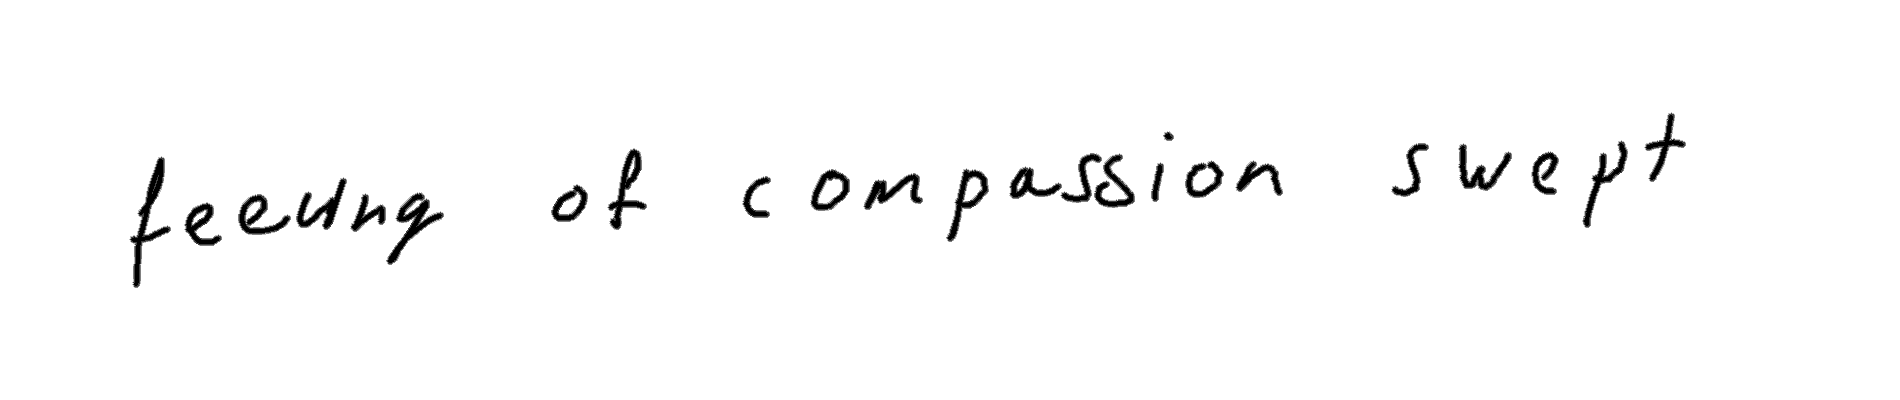 feeling of compassion swept